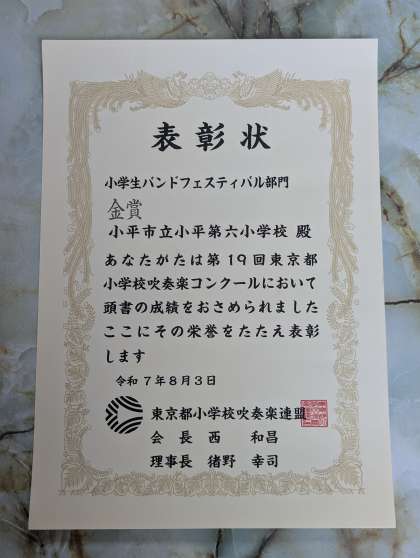 表彰状
小学生バンドフェスティバル部門
金賞
小平市立小平第六小学校 殿
あなたがたは第19回東京都
小学校吹奏楽コンクールにおいて
頭書の成績をおさめられました
ここにその栄誉をたたえ表彰
します
令和7年8月3日
東京都小学校吹奏楽連盟
会 長 西 和昌
理事長 猪野 幸司